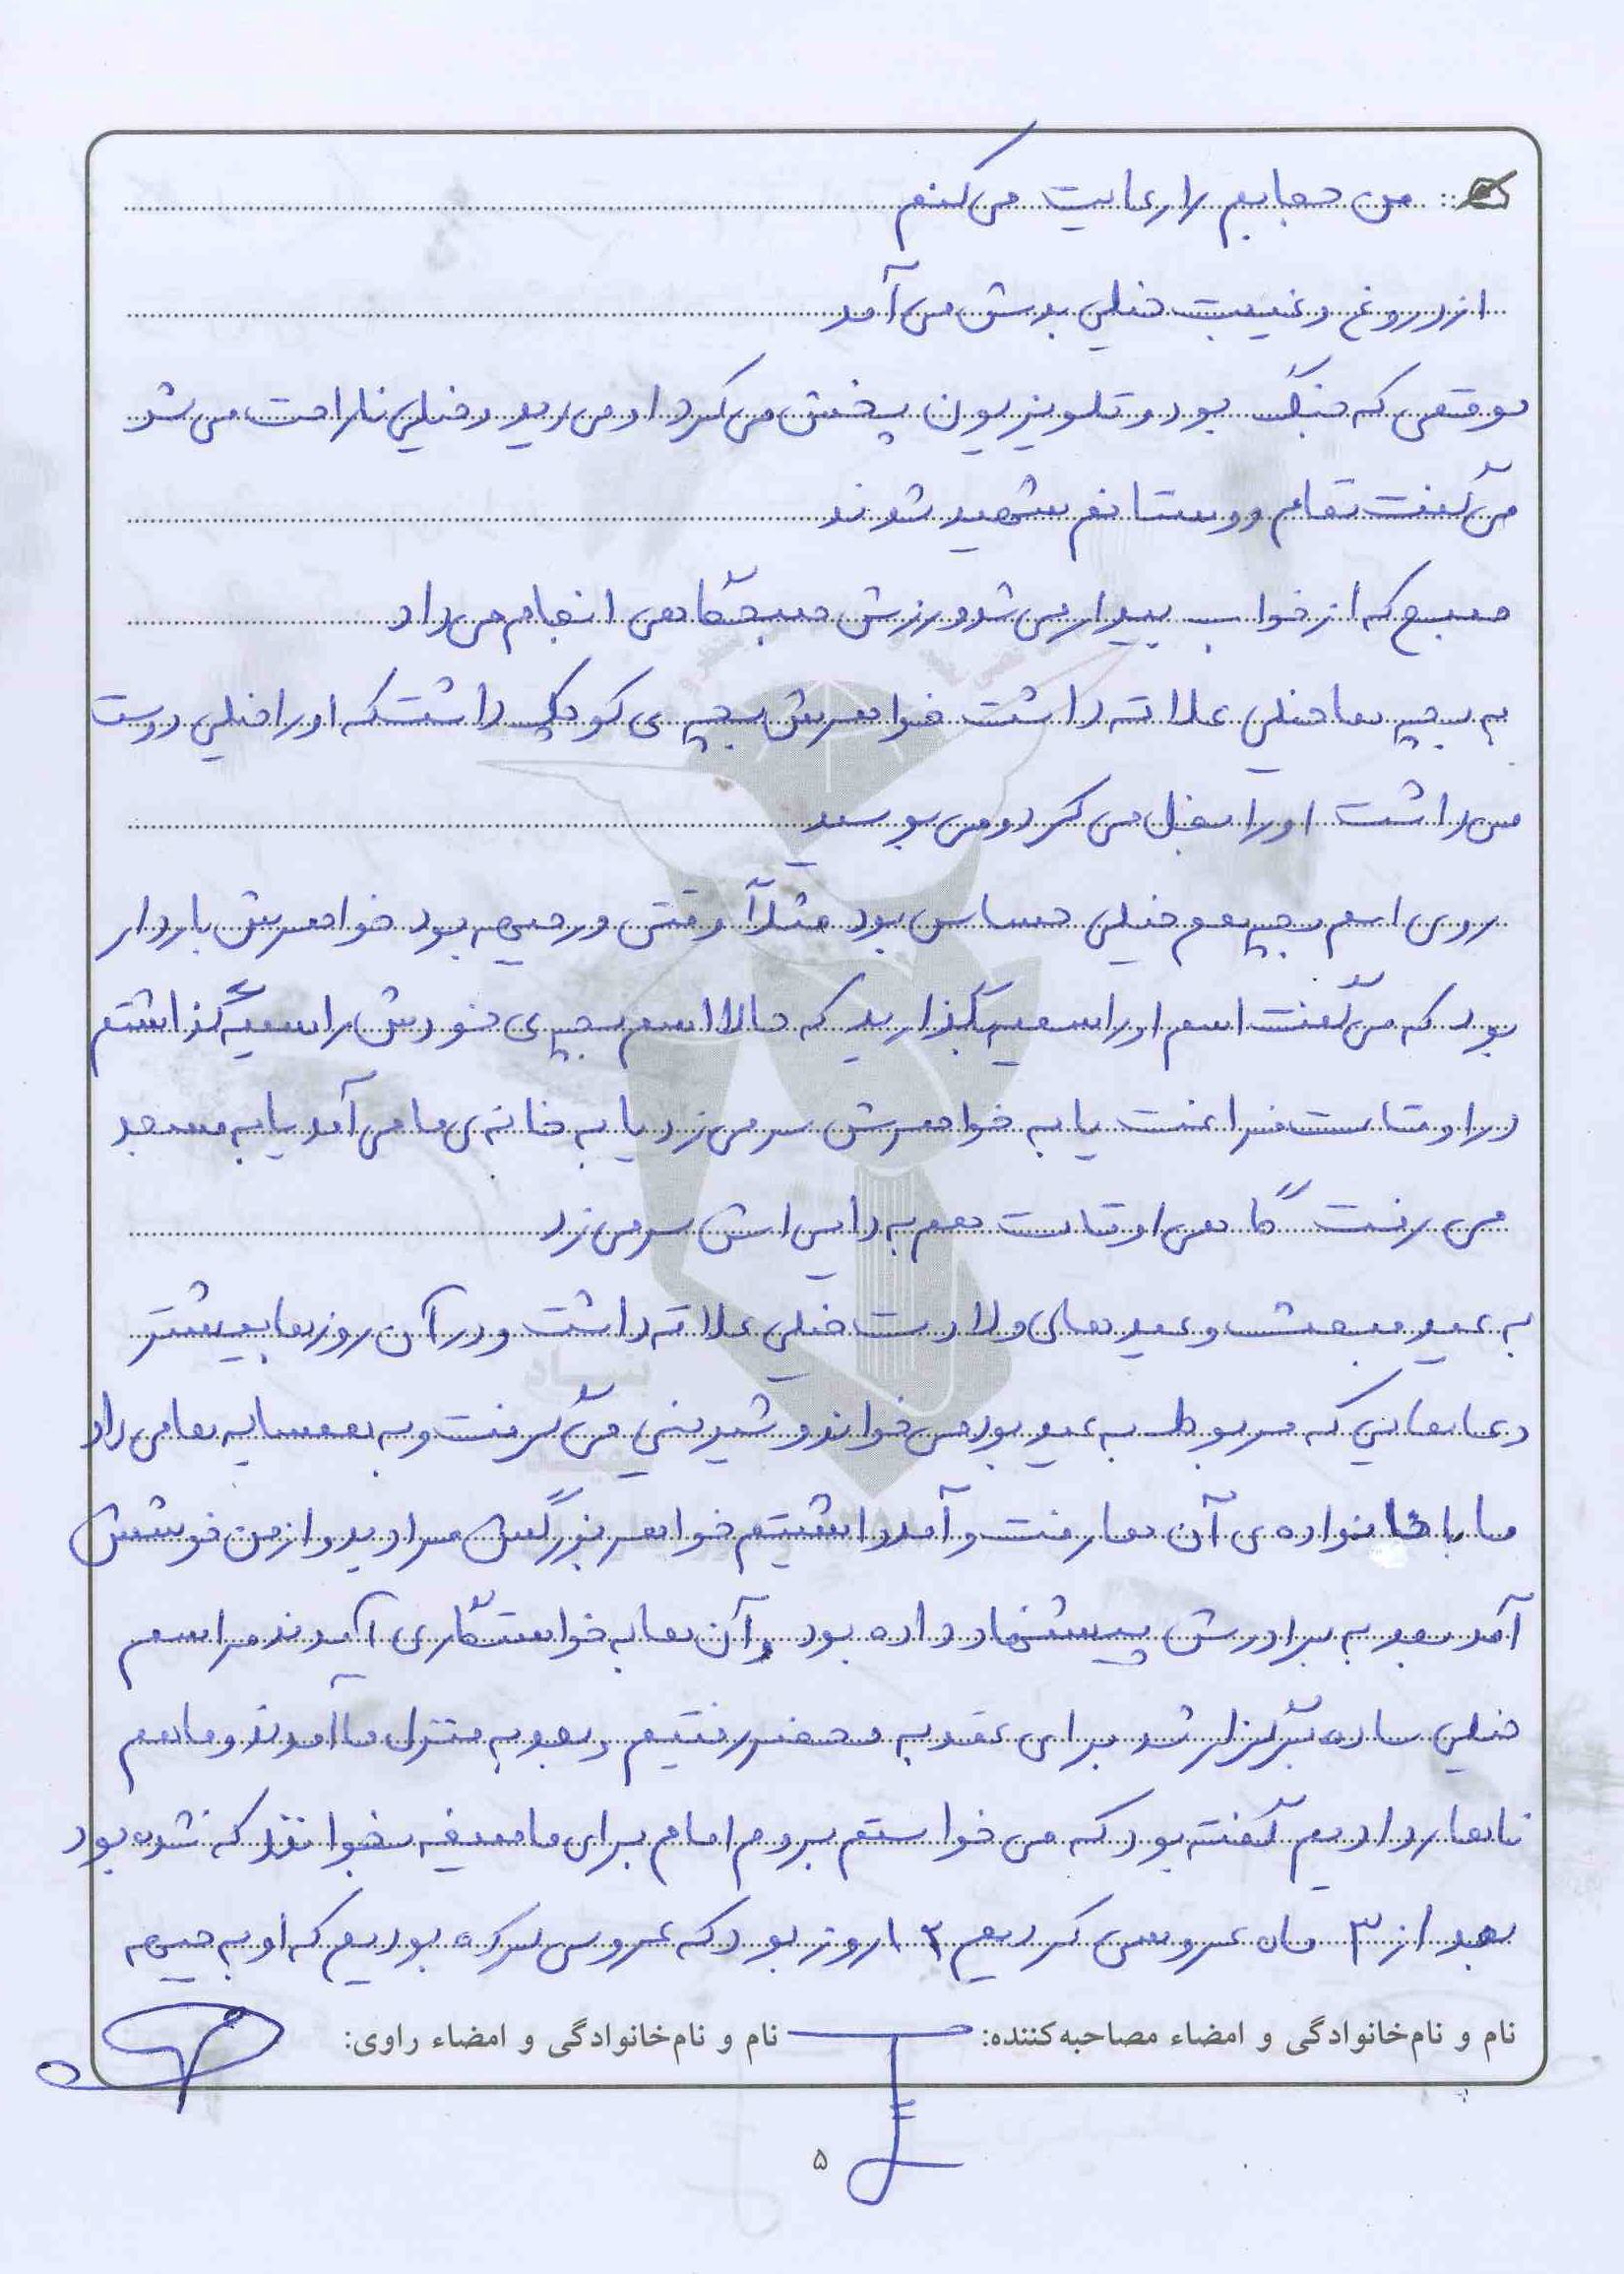 من حجابم را رعایت می‌کنم
از دروغ و غیبت خیلی بدش می‌آمد
موقعی که جنگ بود و تلویزیون پخش می‌کرد او می‌دید و خیلی ناراحت می‌شد
می‌گفت تمام دوستانم شهید شدند
صبح که از خواب بیدار می‌شد ورزش صبحگاهی انجام می‌داد
به بچه‌ها خیلی علاقه داشت خواهرش بچه‌ی کوچک داشت که او را خیلی دوست
می‌داشت او را بغل می‌کرد و می‌بوسید
روی اسم بچه هم خیلی حساس بود مثلاً وقتی در جبهه بود خواهرش باردار
بود که می‌گفت اسم او را سمیه بگذارید که حالا اسم بچه‌ی خودش را سمیه گذاشتم
در اوقات فراغت یا به خواهرش سر می‌زد یا به خانه‌ی ما می‌آمد یا به مسجد
می‌رفت گاهی اوقات هم به دایی‌اش سر می‌زد
به عید مبعث و عیدهای ولادت خیلی علاقه داشت و در آن روزها بیشتر
دعاهایی که مربوط به عید بود می‌خواند و شیرینی می‌گرفت و به همسایه‌ها می‌داد
ما با خانواده‌ی آن‌ها رفت و آمد داشتیم خواهر بزرگش مرا دید و از من خوشش
آمد بعد به برادرش پیشنهاد داده بود و آن‌ها به خواستگاری آمدند مراسم
خیلی ساده برگزار شد برای عقد به محضر رفتیم و بعد به منزل ما آمدند و ما هم
ناهار دادیم گفته بود که می‌خواستم بروم امام برای ما صیغه بخواند که نشده بود
بعد از ۳ ماه عروسی کردیم ۱۲ روز بود که عروسی کرده بودیم که او به جبهه
نام و نام‌خانوادگی و امضاء مصاحبه‌کننده: نام و نام‌خانوادگی و امضاء راوی:
۵